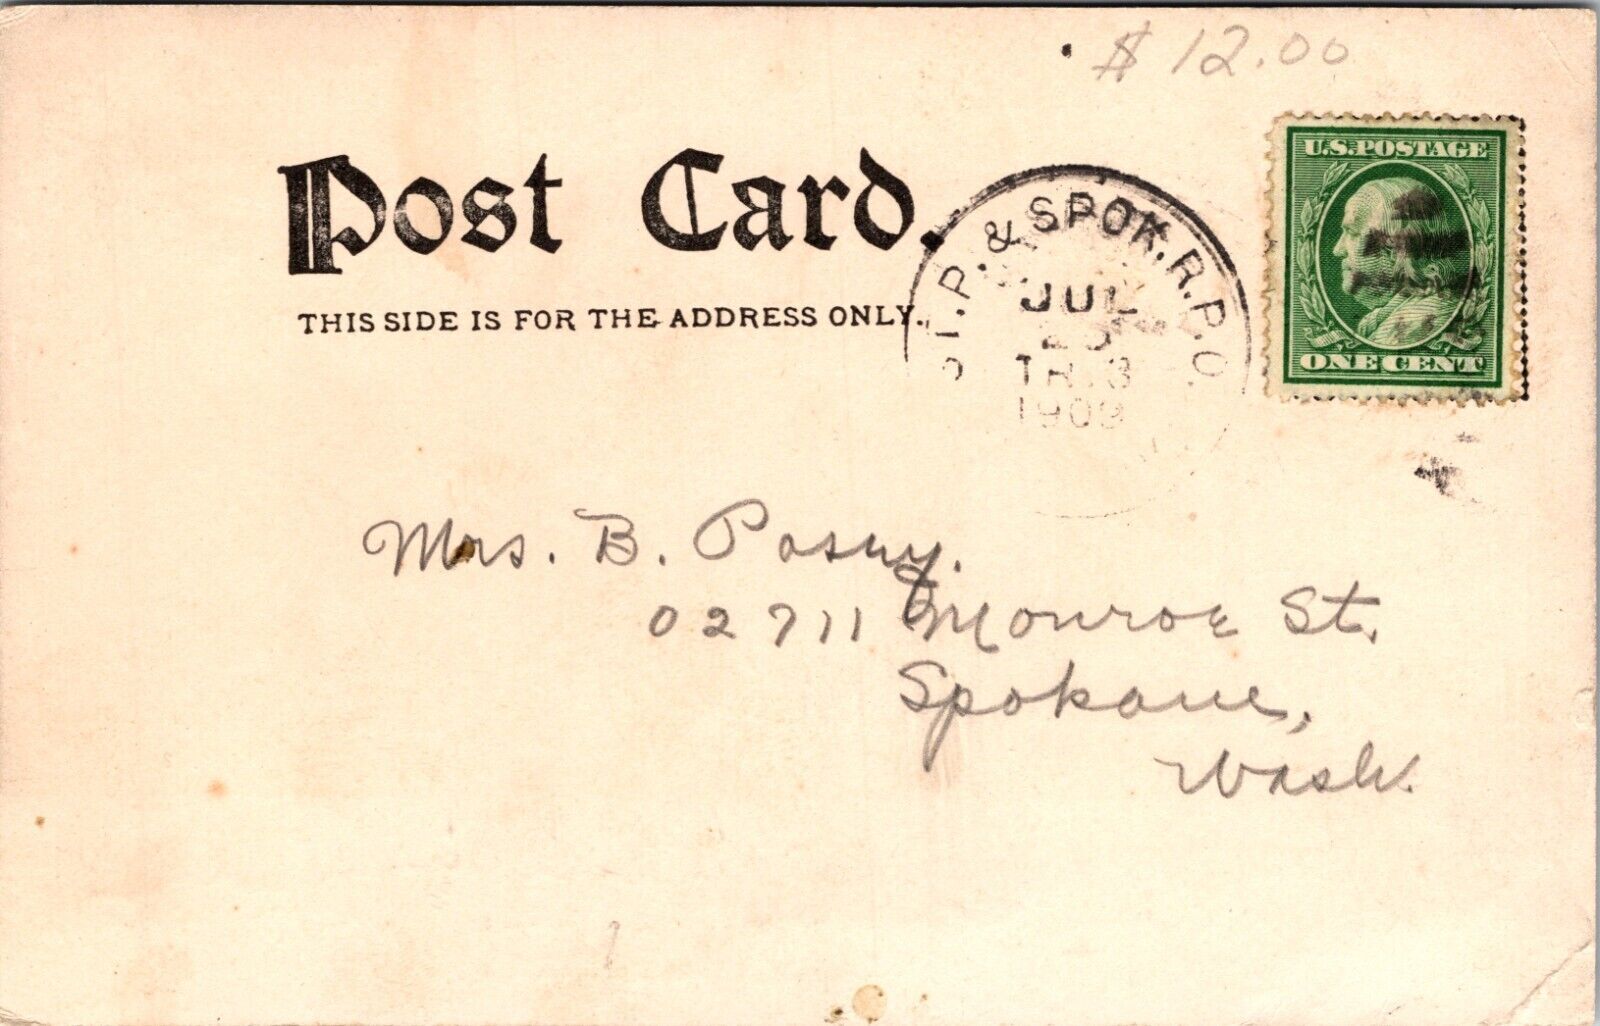 $12.00
U.S. POSTAGE
ONE CENT
Post Card.
THIS SIDE IS FOR THE ADDRESS ONLY.
P. & SPOK. R.P.O.
JUL
TR.3
1909
Mrs. B. Posey.
02711 Monroe St.
Spokane,
Wash.